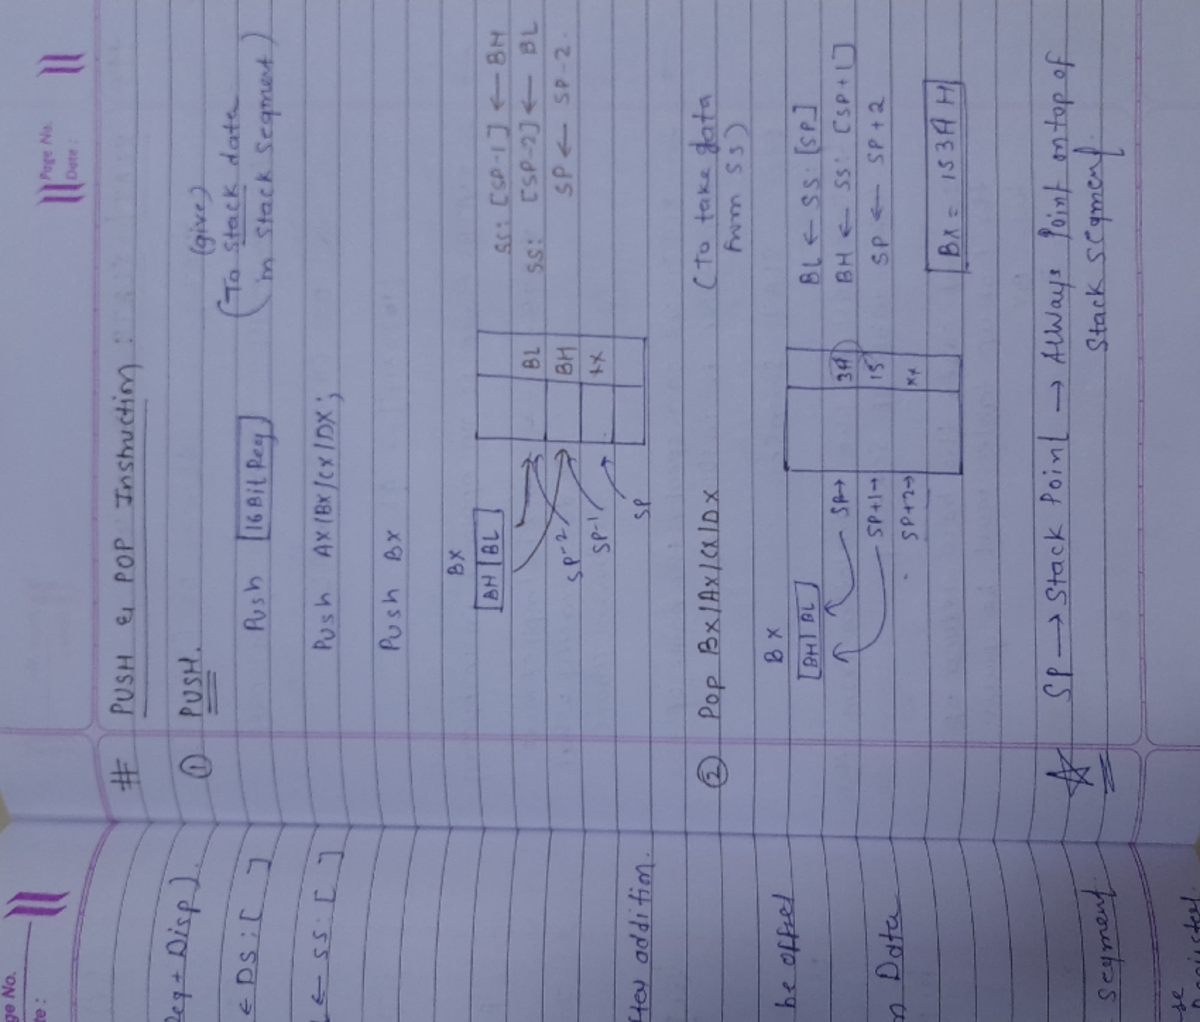 Page No.
Date :
# PUSH & POP Instruction :
① PUSH. (give)
Push [16 Bit Reg] (To Stack data
in stack segment)
Push AX/BX/CX/DX;
Push BX
BX
BH | BL
SP-2
SP-1
SP
BL
BH
XX
SS: [SP-1] ← BH
SS: [SP-2] ← BL
SP ← SP-2.
② Pop BX/AX/CX/DX (To take data
from SS)
BX
BH | BL
SP→
SP+1→
SP+2→
3A
15
XX
BL ← SS: [SP]
BH ← SS: [SP+1]
SP ← SP+2
BX = 153A H
☆ SP → Stack Point → Always Point on top of
Stack Segment.
ge No.
te :
Reg + Disp).
← DS : [ ]
← SS : [ ]
fter addition.
be offset
n Data
segment
se